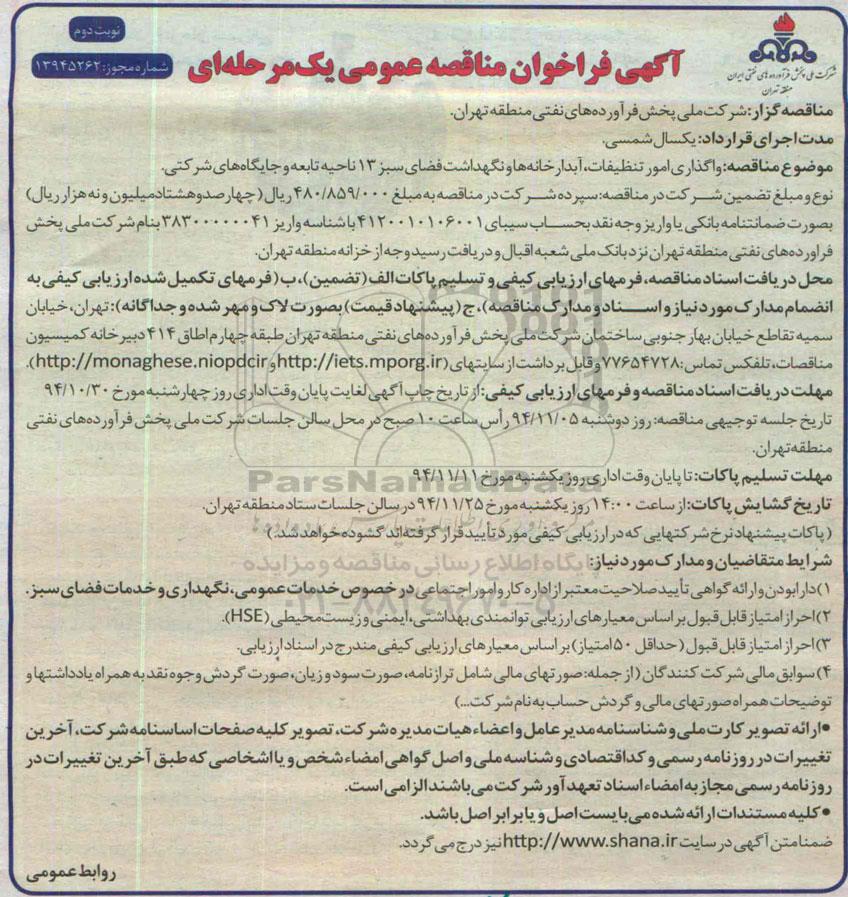 نوبت دوم
شماره مجوز: ۱۳۹۴۵۲۶۲
شرکت ملی پخش فرآورده های نفتی ایران
منطقه تهران
آگهی فراخوان مناقصه عمومی یک مرحله‌ای
مناقصه گزار: شرکت ملی پخش فرآورده‌های نفتی منطقه تهران.
مدت اجرای قرارداد: یکسال شمسی.
موضوع مناقصه: واگذاری امور تنظیفات، آبدارخانه‌ها و نگهداشت فضای سبز ۱۳ ناحیه تابعه و جایگاه‌های شرکتی.
نوع و مبلغ تضمین شرکت در مناقصه: سپرده شرکت در مناقصه به مبلغ ۴۸۰/۸۵۹/۰۰۰ ریال (چهارصد و هشتاد میلیون و نه هزار ریال)
بصورت ضمانتنامه بانکی یا واریز وجه نقد بحساب سیبای ۴۱۲۰۰۱۰۱۰۶۰۰۱ با شناسه واریز ۳۸۳۰۰۰۰۰۰۰۴۱ بنام شرکت ملی پخش
فراورده‌های نفتی منطقه تهران نزد بانک ملی شعبه اقبال و دریافت رسید وجه از خزانه منطقه تهران.
محل دریافت اسناد مناقصه، فرمهای ارزیابی کیفی و تسلیم پاکات الف (تضمین)، ب (فرمهای تکمیل شده ارزیابی کیفی به
انضمام مدارک مورد نیاز و اسناد و مدارک مناقصه)، ج (پیشنهاد قیمت) بصورت لاک و مهر شده و جداگانه): تهران، خیابان
سمیه تقاطع خیابان بهار جنوبی ساختمان شرکت ملی پخش فرآورده‌های نفتی منطقه تهران طبقه چهارم اطاق ۴۱۴ دبیرخانه کمیسیون
مناقصات، تلفکس تماس: ۷۷۶۵۴۷۲۸ و قابل برداشت از سایتهای (http://iets.mporg.ir و http://monaghese.niopdcir).
مهلت دریافت اسناد مناقصه و فرمهای ارزیابی کیفی: از تاریخ چاپ آگهی لغایت پایان وقت اداری روز چهارشنبه مورخ ۹۴/۱۰/۳۰
تاریخ جلسه توجیهی مناقصه: روز دوشنبه ۹۴/۱۱/۰۵ رأس ساعت ۱۰ صبح در محل سالن جلسات شرکت ملی پخش فرآورده‌های نفتی
منطقه تهران.
مهلت تسلیم پاکات: تا پایان وقت اداری روز یکشنبه مورخ ۹۴/۱۱/۱۱
تاریخ گشایش پاکات: از ساعت ۱۴:۰۰ روز یکشنبه مورخ ۹۴/۱۱/۲۵ در سالن جلسات ستاد منطقه تهران.
(پاکات پیشنهاد نرخ شرکتهایی که در ارزیابی کیفی مورد تأیید قرار گرفته‌اند گشوده خواهد شد.)
شرایط متقاضیان و مدارک مورد نیاز:
۱) دارا بودن و ارائه گواهی تأیید صلاحیت معتبر از اداره کار و امور اجتماعی در خصوص خدمات عمومی، نگهداری و خدمات فضای سبز.
۲) احراز امتیاز قابل قبول بر اساس معیارهای ارزیابی توانمندی بهداشتی، ایمنی و زیست محیطی (HSE).
۳) احراز امتیاز قابل قبول (حداقل ۵۰ امتیاز) بر اساس معیارهای ارزیابی کیفی مندرج در اسناد ارزیابی.
۴) سوابق مالی شرکت کنندگان (از جمله: صورتهای مالی شامل ترازنامه، صورت سود و زیان، صورت گردش وجوه نقد به همراه یادداشتها و
توضیحات همراه صورتهای مالی و گردش حساب به نام شرکت...)
• ارائه تصویر کارت ملی و شناسنامه مدیر عامل و اعضاء هیات مدیره شرکت، تصویر کلیه صفحات اساسنامه شرکت، آخرین
تغییرات در روزنامه رسمی و کد اقتصادی و شناسه ملی و اصل گواهی امضاء شخص و یا اشخاصی که طبق آخرین تغییرات در
روزنامه رسمی مجاز به امضاء اسناد تعهدآور شرکت می‌باشند الزامی است.
• کلیه مستندات ارائه شده می‌بایست اصل و یا برابر اصل باشد.
ضمنا متن آگهی در سایت http://www.shana.ir نیز درج می گردد.
روابط عمومی
ParsNamadData
پایگاه اطلاع رسانی مناقصه و مزایده
۰۲۱-۸۸۳۴۹۶۷۰-۵